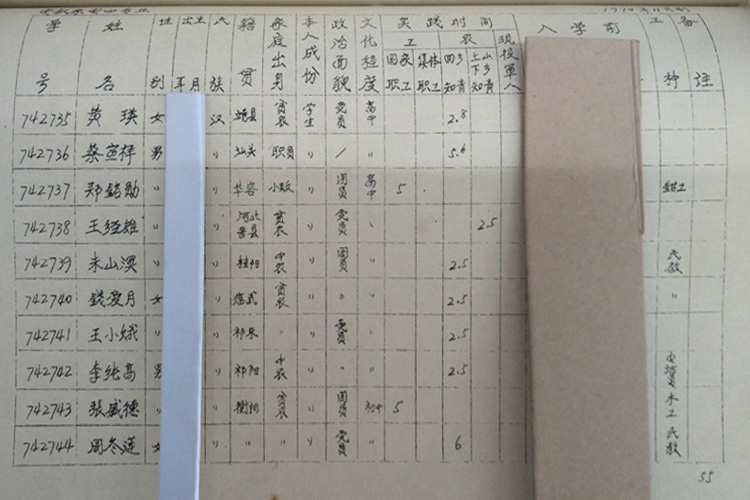 学号 姓名 性别 出生年月 民族 籍贯 家庭出身 本人成份 政治面貌 文化程度 实践时间 现役军人 入学前 工种 备注
工 农
国家职工 集体职工 回乡知青 上山下乡知青
742735 黄瑛 女 汉 贫农 学生 党员 高中 2.8
742736 蔡宣祥 男 〃 汕头 职员 〃 / 〃 5.6
742737 郑铭勋 〃 〃 华容 小贩 〃 团员 高中 5 钳工
742738 王经雄 〃 〃 河北景县 贫农 〃 党员 〃 2.5
742739 朱山溟 〃 〃 桂阳 中农 〃 团员 〃 2.5 民教
742740 钱爱月 女 〃 临武 贫农 〃 〃 〃 2.5 〃
742741 王小娥 〃 〃 祁东 〃 〃 党员 〃 2.5
742742 李纯高 男 〃 祁阳 中农 〃 〃 〃 2.5
742743 张盛德 〃 〃 衡阳 贫农 〃 团员 初中 5 木工
742744 周冬莲 女 〃 〃 〃 〃 党员 〃 6 民教
55